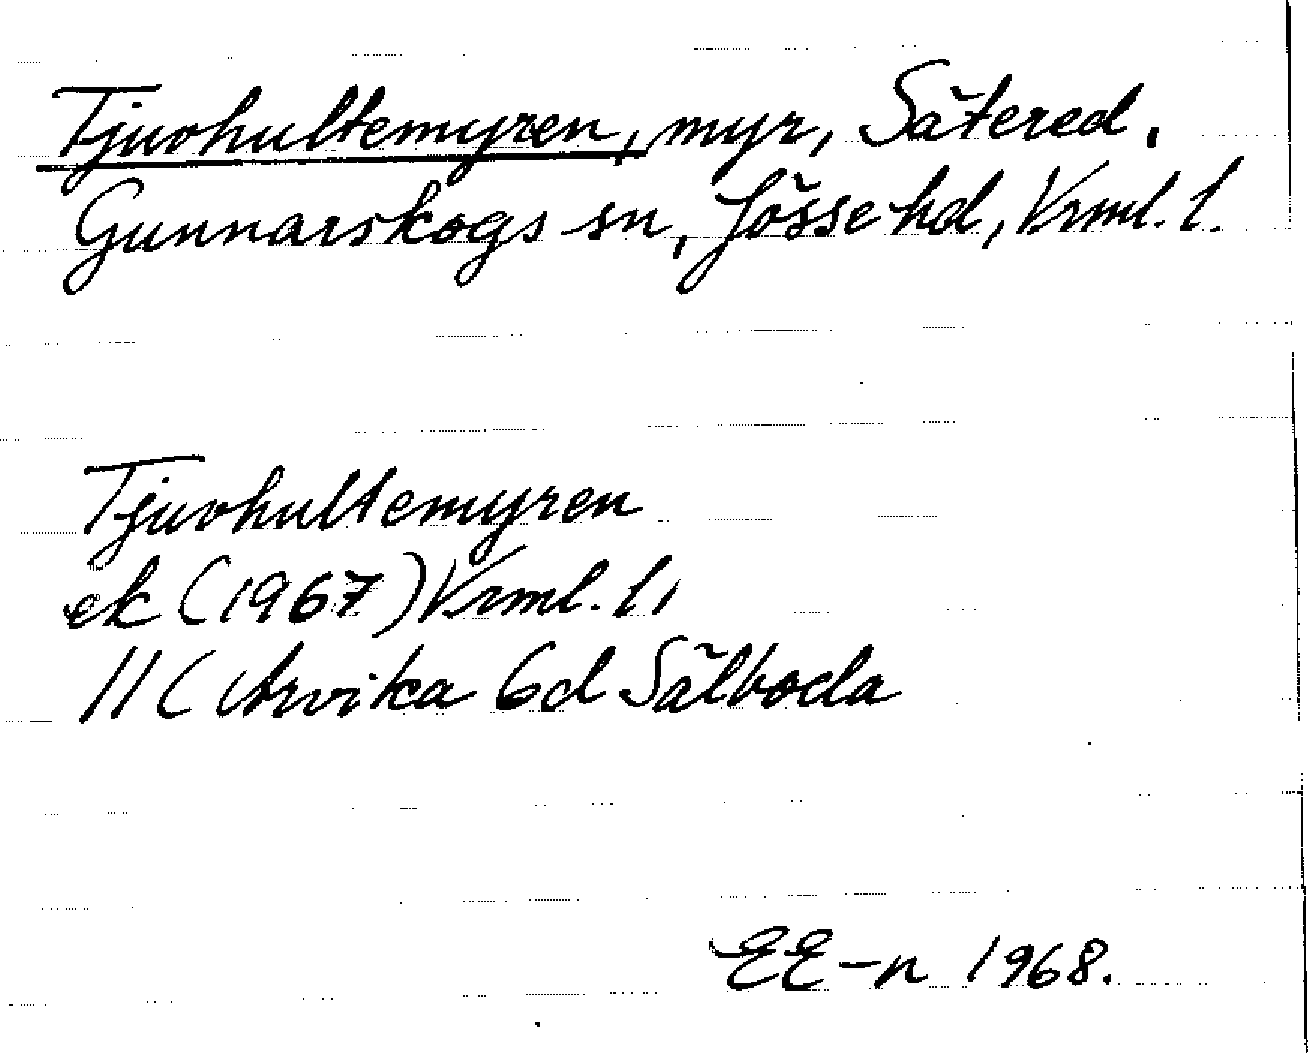 Tjuvhultemyren, myr, Sätered.
Gunnarskogs sn, Jösse hd, Vrml. l.
Tjuvhultemyren
ek (1967) Vrml. l,
11 C Arvika 6d Sälboda
EE-n 1968.